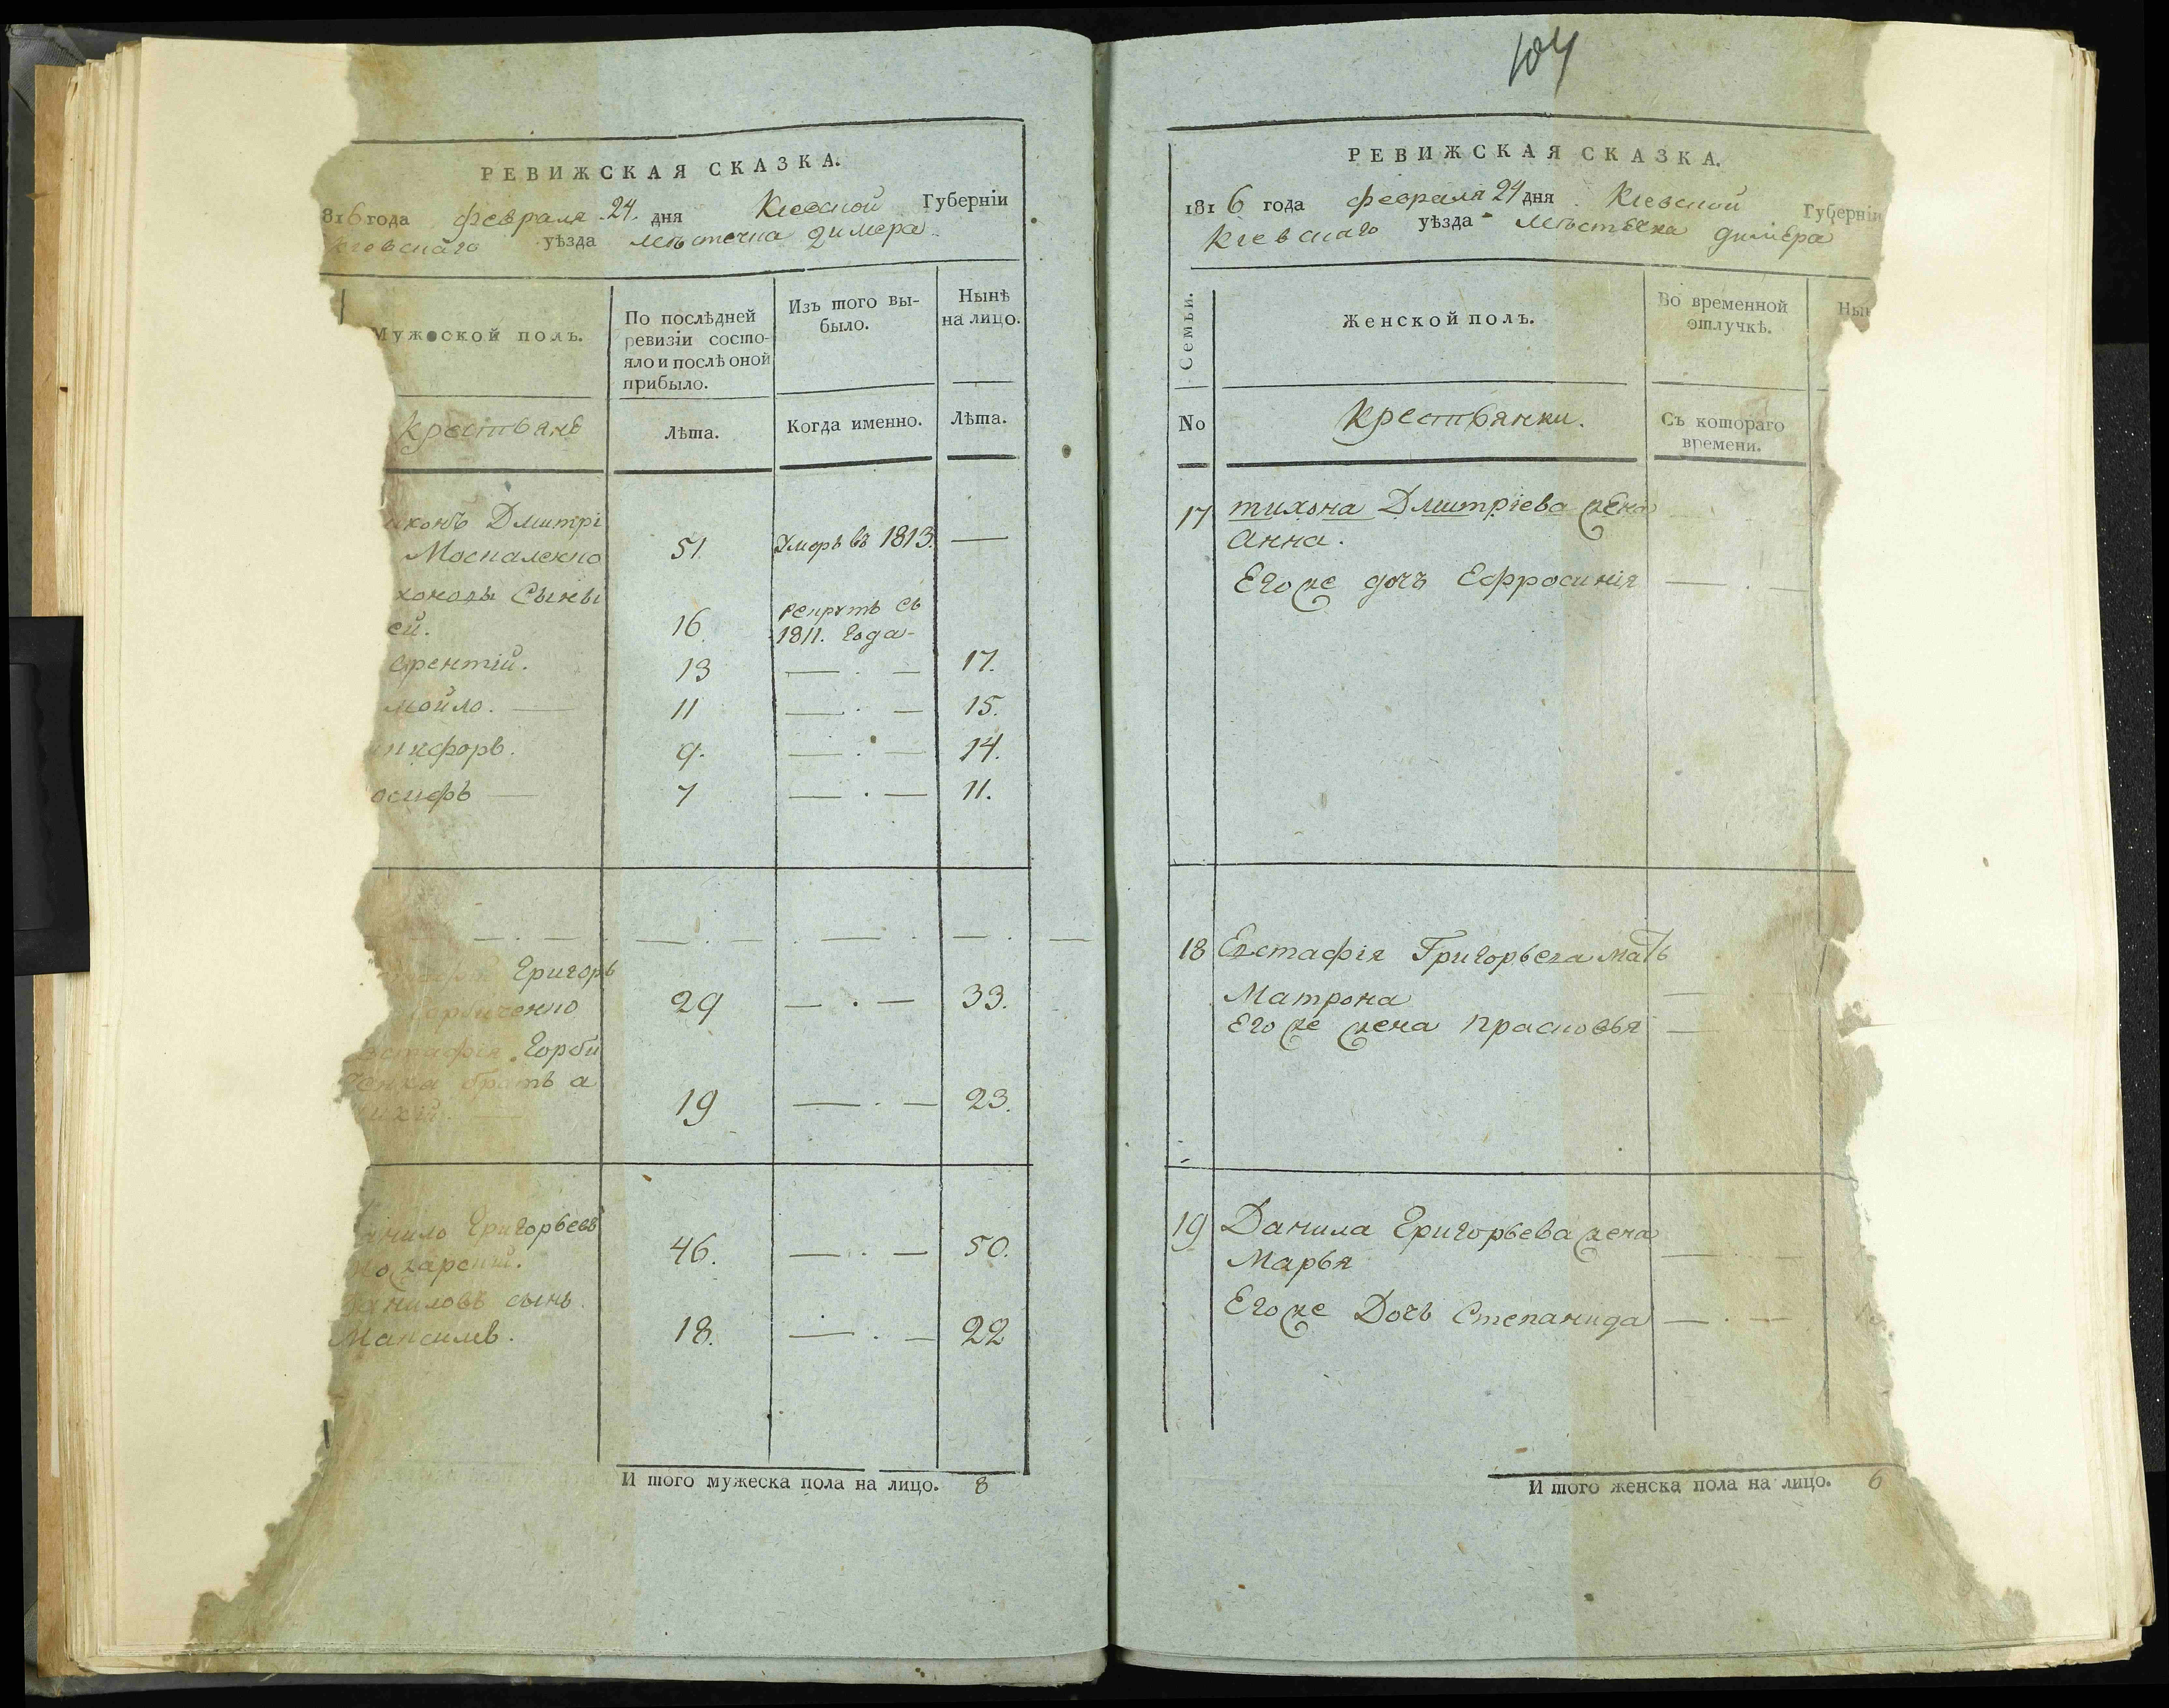 РЕВИЖСКАЯ СКАЗКА.
816 года февраля 24. дня Кіевской Губерніи
уѣзда мѣстечка димера
Мужеской полъ.
По послѣдней
ревизіи состо-
яло и послѣ оной
прибыло.
Изъ того вы-
было.
Нынѣ
на лицо.
крестьянѣ
Лѣта.
Когда именно.
Лѣта.
иконъ Дмитрі
Москаленко 51. Умеръ въ 1813. —
сыны
ей. 16. рекрутъ съ
1811. года-
13 — . — 17.
мойло. — 11 — . — 15.
икифоръ. 9. — . — 14.
осифъ — 7 — . — 11.
— . — . — . — . — . — . —
Григорь
29 — . — 33.
встафія Горби
ченка братъ а
19 — . — 23.
анило Григорьевъ
46. — . — 50.
аниловъ сынъ
Максимъ. 18. — . — 22
И того мужеска пола на лицо. 8
104
РЕВИЖСКАЯ СКАЗКА.
1816 года февраля 24 дня Кіевской Губерніи
Кіевскаго уѣзда мѣстечка димера
Семьи.
Женской полъ.
Во временной
отлучкѣ.
Нын
No
крестьянки.
Съ котораго
времени.
17 тихона Дмитріева жена
Анна.
Его же дочъ Ефросинія — . —
18 Евстафія Григорьева мать
Матрона —
Его же жена Прасковья —
19 Данила Григорьева жена
Марья — . —
Его же Дочь Степанида — . —
И того женска пола на лицо. 6